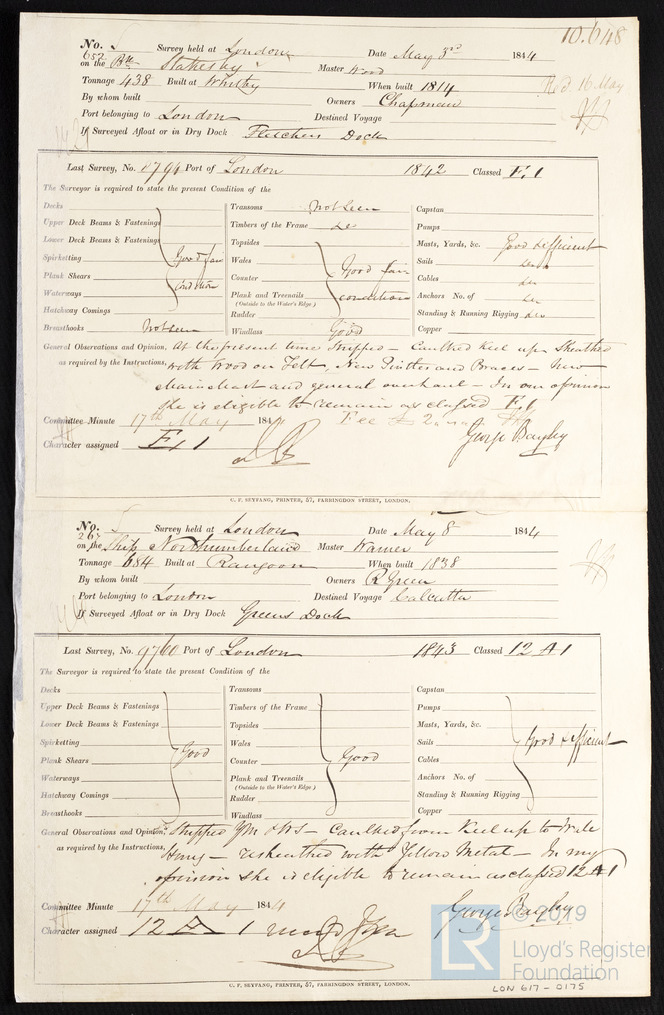 10.648
No. 5 Survey held at London Date May 3rd 1844
652 on the Bk Stakesby Master Wood
Tonnage 438 Built at Whitby When built 1814
Wed. 16 May
By whom built Owners Chapman
Port belonging to London Destined Voyage
If Surveyed Afloat or in Dry Dock Fletchers Dock
Last Survey, No. 8794 Port of London 1842 Classed Æ 1
The Surveyor is required to state the present Condition of the
Decks Transoms Not Seen Capstan
Upper Deck Beams & Fastenings Timbers of the Frame do Pumps
Lower Deck Beams & Fastenings Topsides Masts, Yards, &c. Good & efficient
Spirketting Good fair Wales Sails do
Plank Shears Condition Counter Good fair Cables do
Waterways Plank and Treenails condition Anchors No. of do
(Outside to the Water's Edge)
Hatchway Comings Rudder Standing & Running Rigging do
Breasthooks Not Seen Windlass Good Copper
General Observations and Opinion, At the present time Stripped – Caulked Keel up Sheathed
as required by the Instructions, with Wood on Felt, New Pintles and Braces – New
Mainmast and general overhaul – In our opinion
she is eligible to remain as classed Æ 1
Committee Minute 17th May 1844 Fee £ 2
Character assigned Æ 1 George Bayley
C. F. SEYFANG, PRINTER, 57, FARRINGDON STREET, LONDON.
No. 5 Survey held at London Date May 8 1844
265 on the Ship Northumberland Master Warner
Tonnage 684 Built at Rangoon When built 1838
By whom built Owners R Green
Port belonging to London Destined Voyage Calcutta
If Surveyed Afloat or in Dry Dock Greens Dock
Last Survey, No. 9760 Port of London 1843 Classed 12 A 1
The Surveyor is required to state the present Condition of the
Decks Transoms Capstan
Upper Deck Beams & Fastenings Timbers of the Frame Pumps
Lower Deck Beams & Fastenings Topsides Masts, Yards, &c.
Spirketting Wales Sails Good & efficient
Plank Shears Good Counter Good Cables
Waterways Plank and Treenails Anchors No. of
(Outside to the Water's Edge)
Hatchway Comings Rudder Standing & Running Rigging
Breasthooks Windlass Copper
General Observations and Opinion, Stripped – Caulked from Keel up to Wale
as required by the Instructions, – resheathed with Yellow Metal – In my
opinion she is eligible to remain as classed 12 A 1
Committee Minute 17th May 1844 George Bayley
Character assigned 12 A 1
C. F. SEYFANG, PRINTER, 57, FARRINGDON STREET, LONDON.
© 2019
LR Lloyd's Register
Foundation
LON 617 - 0175